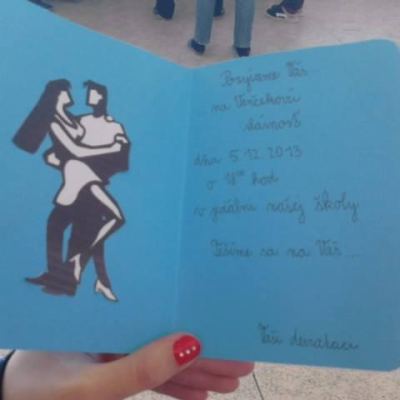 Pozývame Vás
na Venčekovú
slávnosť
dňa 5.12.2013
o 18⁰⁰ hod
v jedálni našej školy
Tešíme sa na Vás...
Vaši deviataci